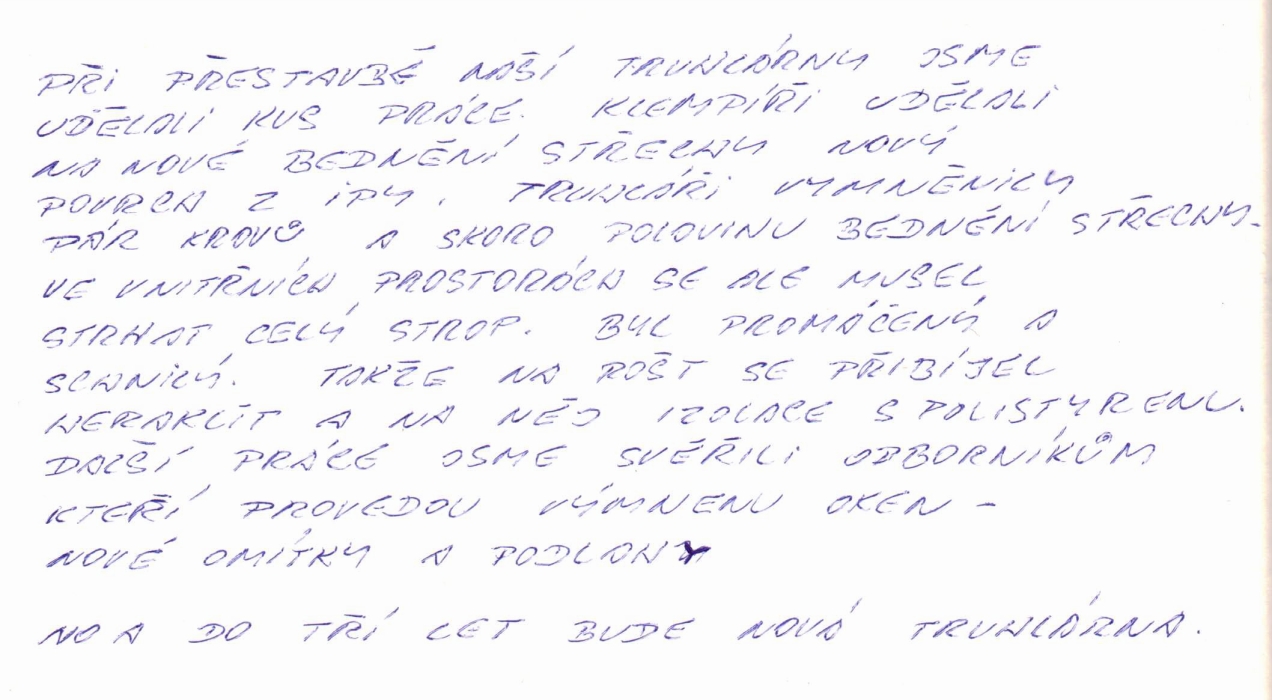 PŘI PŘESTAVBĚ NAŠÍ TRUHLÁRNY JSME
UDĚLALI KUS PRÁCE. KLEMPÍŘI UDĚLALI
NA NOVÉ BEDNĚNÍ STŘECHY NOVÝ
POVRCH Z IPY. TRUHLÁŘI VYMNĚNILY
PÁR KROVŮ A SKORO POLOVINU BEDNĚNÍ STŘECHY.
VE VNITŘNÍCH PROSTORÁCH SE ALE MUSEL
STRHAT CELÝ STROP. BYL PROMÁČENÝ A
SHNILÝ. TAKŽE NA ROŠT SE PŘIBÍJEL
HERAKLIT A NA NĚJ IZOLACE S POLISTYRENU.
DALŠÍ PRÁCE JSME SVĚŘILI ODBORNÍKŮM
KTEŘÍ PROVEDOU VÝMNENU OKEN -
NOVÉ OMÍTKY A PODLAHY
NO A DO TŘÍ LET BUDE NOVÁ TRUHLÁRNA.